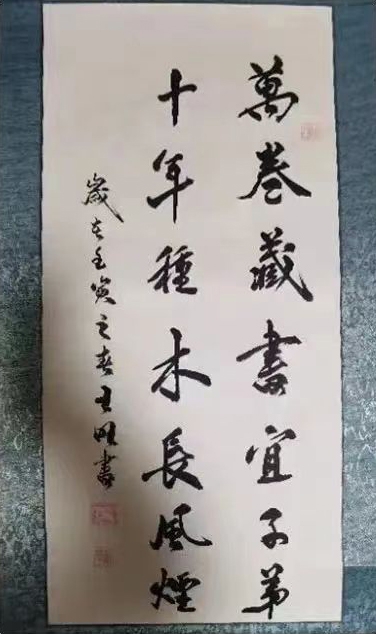 萬卷藏書宜子弟
十年種木長風煙
歲在壬寅之春士明書